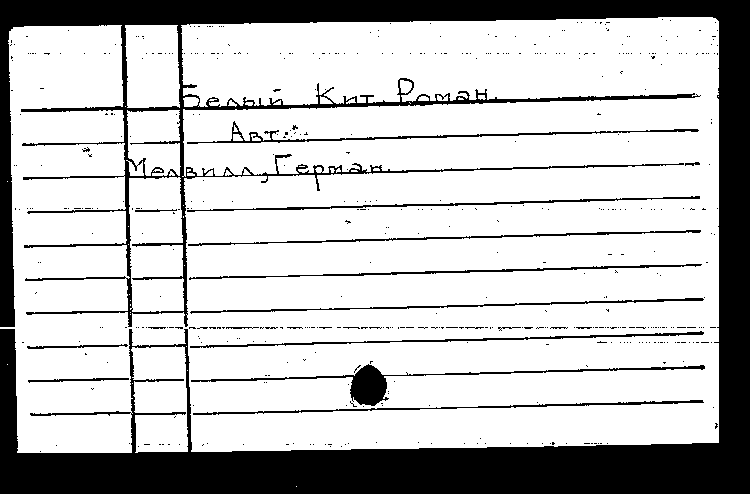 Белый Кит. Роман.
Авт.:
Мелвилл, Герман.